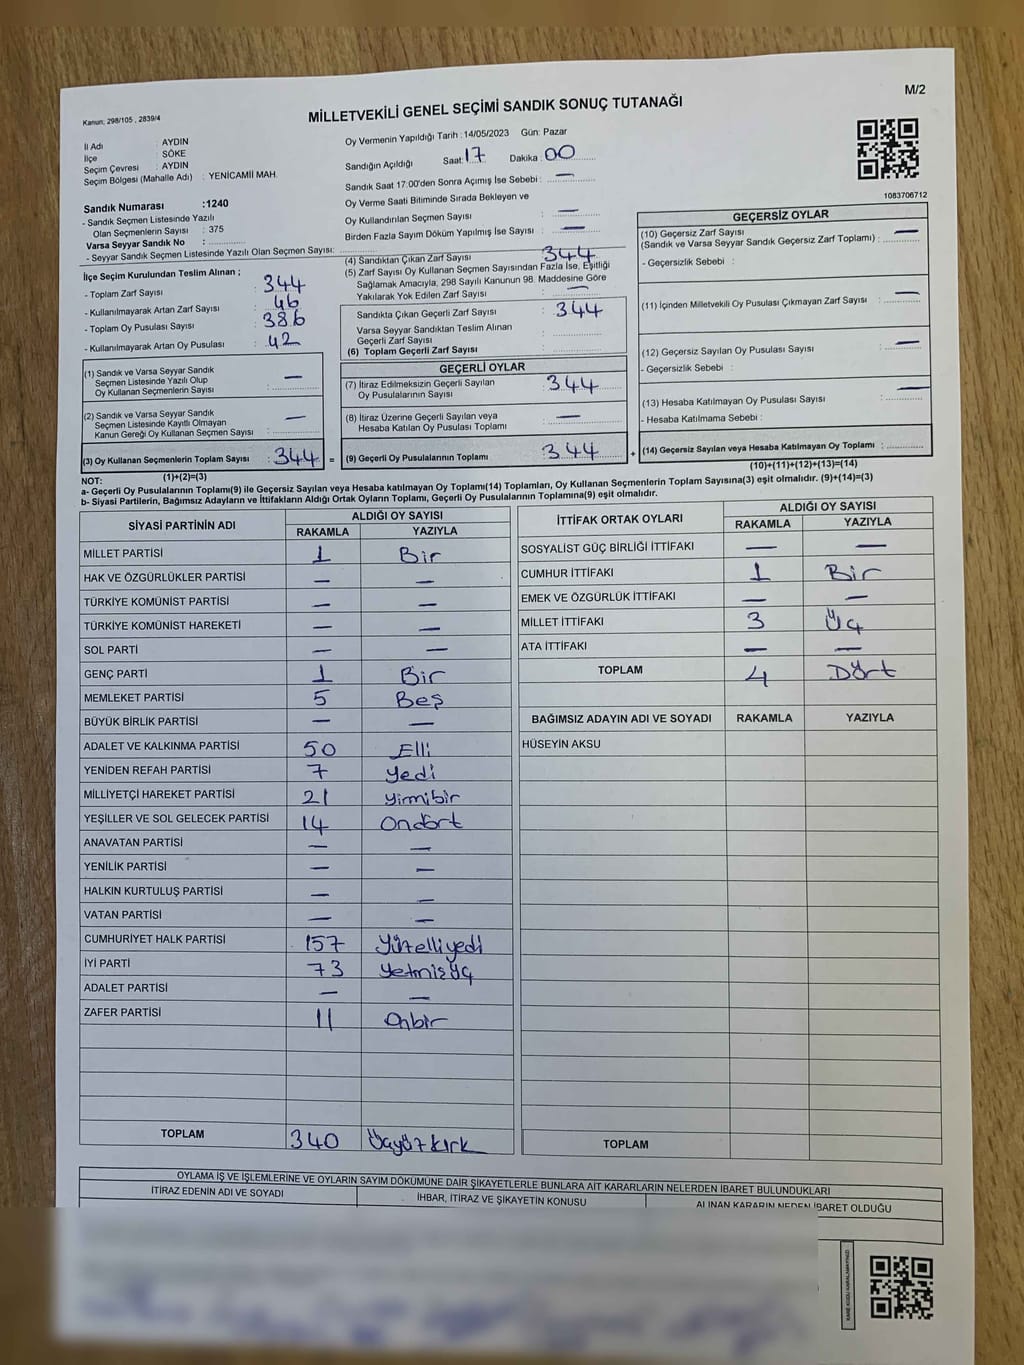 M/2
Kanun, 298/105 , 2839/4
MİLLETVEKİLİ GENEL SEÇİMİ SANDIK SONUÇ TUTANAĞI
İl Adı : AYDIN
İlçe : SÖKE
Seçim Çevresi : AYDIN
Seçim Bölgesi (Mahalle Adı) : YENİCAMİİ MAH.
Sandık Numarası :1240
- Sandık Seçmen Listesinde Yazılı
Olan Seçmenlerin Sayısı : 375
Varsa Seyyar Sandık No :
- Seyyar Sandık Seçmen Listesinde Yazılı Olan Seçmen Sayısı:
Oy Vermenin Yapıldığı Tarih : 14/05/2023 Gün: Pazar
Sandığın Açıldığı Saat: 17 Dakika : 00
Sandık Saat 17:00'den Sonra Açımış İse Sebebi : —
Oy Verme Saati Bitiminde Sırada Bekleyen ve
Oy Kullandırılan Seçmen Sayısı : —
Birden Fazla Sayım Döküm Yapılmış İse Sayısı : —
1083706712
İlçe Seçim Kurulundan Teslim Alınan ;
- Toplam Zarf Sayısı : 344
- Kullanılmayarak Artan Zarf Sayısı : 46
- Toplam Oy Pusulası Sayısı : 386
- Kullanılmayarak Artan Oy Pusulası : 42
(1) Sandık ve Varsa Seyyar Sandık
Seçmen Listesinde Yazılı Olup
Oy Kullanan Seçmenlerin Sayısı : —
(2) Sandık ve Varsa Seyyar Sandık
Seçmen Listesinde Kayıtlı Olmayan
Kanun Gereği Oy Kullanan Seçmen Sayısı : —
(3) Oy Kullanan Seçmenlerin Toplam Sayısı : 344 =
(1)+(2)=(3)
(4) Sandıktan Çıkan Zarf Sayısı : 344
(5) Zarf Sayısı Oy Kullanan Seçmen Sayısından Fazla İse, Eşitliği
Sağlamak Amacıyla, 298 Sayılı Kanunun 98. Maddesine Göre
Yakılarak Yok Edilen Zarf Sayısı : —
Sandıkta Çıkan Geçerli Zarf Sayısı : 344
Varsa Seyyar Sandıktan Teslim Alınan
Geçerli Zarf Sayısı :
(6) Toplam Geçerli Zarf Sayısı :
GEÇERLİ OYLAR
(7) İtiraz Edilmeksizin Geçerli Sayılan
Oy Pusulalarının Sayısı : 344
(8) İtiraz Üzerine Geçerli Sayılan veya
Hesaba Katılan Oy Pusulası Toplamı : —
(9) Geçerli Oy Pusulalarının Toplamı : 344 +
GEÇERSİZ OYLAR
(10) Geçersiz Zarf Sayısı
(Sandık ve Varsa Seyyar Sandık Geçersiz Zarf Toplamı) : —
- Geçersizlik Sebebi :
(11) İçinden Milletvekili Oy Pusulası Çıkmayan Zarf Sayısı : —
(12) Geçersiz Sayılan Oy Pusulası Sayısı : —
- Geçersizlik Sebebi :
(13) Hesaba Katılmayan Oy Pusulası Sayısı : —
- Hesaba Katılmama Sebebi :
(14) Geçersiz Sayılan veya Hesaba Katılmayan Oy Toplamı :
(10)+(11)+(12)+(13)=(14)
NOT:
a- Geçerli Oy Pusulalarının Toplamı(9) ile Geçersiz Sayılan veya Hesaba katılmayan Oy Toplamı(14) Toplamları, Oy Kullanan Seçmenlerin Toplam Sayısına(3) eşit olmalıdır. (9)+(14)=(3)
b- Siyasi Partilerin, Bağımsız Adayların ve İttifakların Aldığı Ortak Oyların Toplamı, Geçerli Oy Pusulalarının Toplamına(9) eşit olmalıdır.
SİYASİ PARTİNİN ADI ALDIĞI OY SAYISI
RAKAMLA YAZIYLA
MİLLET PARTİSİ 1 Bir
HAK VE ÖZGÜRLÜKLER PARTİSİ — —
TÜRKİYE KOMÜNİST PARTİSİ — —
TÜRKİYE KOMÜNİST HAREKETİ — —
SOL PARTİ — —
GENÇ PARTİ 1 Bir
MEMLEKET PARTİSİ 5 Beş
BÜYÜK BİRLİK PARTİSİ — —
ADALET VE KALKINMA PARTİSİ 50 Elli
YENİDEN REFAH PARTİSİ 7 Yedi
MİLLİYETÇİ HAREKET PARTİSİ 21 Yirmibir
YEŞİLLER VE SOL GELECEK PARTİSİ 14 Ondört
ANAVATAN PARTİSİ — —
YENİLİK PARTİSİ — —
HALKIN KURTULUŞ PARTİSİ — —
VATAN PARTİSİ — —
CUMHURİYET HALK PARTİSİ 157 Yüzelliyedi
İYİ PARTİ 73 Yetmişüç
ADALET PARTİSİ — —
ZAFER PARTİSİ 11 Onbir
TOPLAM 340 Üçyüzkırk
İTTİFAK ORTAK OYLARI ALDIĞI OY SAYISI
RAKAMLA YAZIYLA
SOSYALİST GÜÇ BİRLİĞİ İTTİFAKI — —
CUMHUR İTTİFAKI 1 Bir
EMEK VE ÖZGÜRLÜK İTTİFAKI — —
MİLLET İTTİFAKI 3 Üç
ATA İTTİFAKI — —
TOPLAM 4 Dört
BAĞIMSIZ ADAYIN ADI VE SOYADI RAKAMLA YAZIYLA
HÜSEYİN AKSU
TOPLAM
OYLAMA İŞ VE İŞLEMLERİNE VE OYLARIN SAYIM DÖKÜMÜNE DAİR ŞİKAYETLERLE BUNLARA AİT KARARLARIN NELERDEN İBARET BULUNDUKLARI
İTİRAZ EDENİN ADI VE SOYADI İHBAR, İTİRAZ VE ŞİKAYETİN KONUSU ALINAN KARARIN NEDEN İBARET OLDUĞU